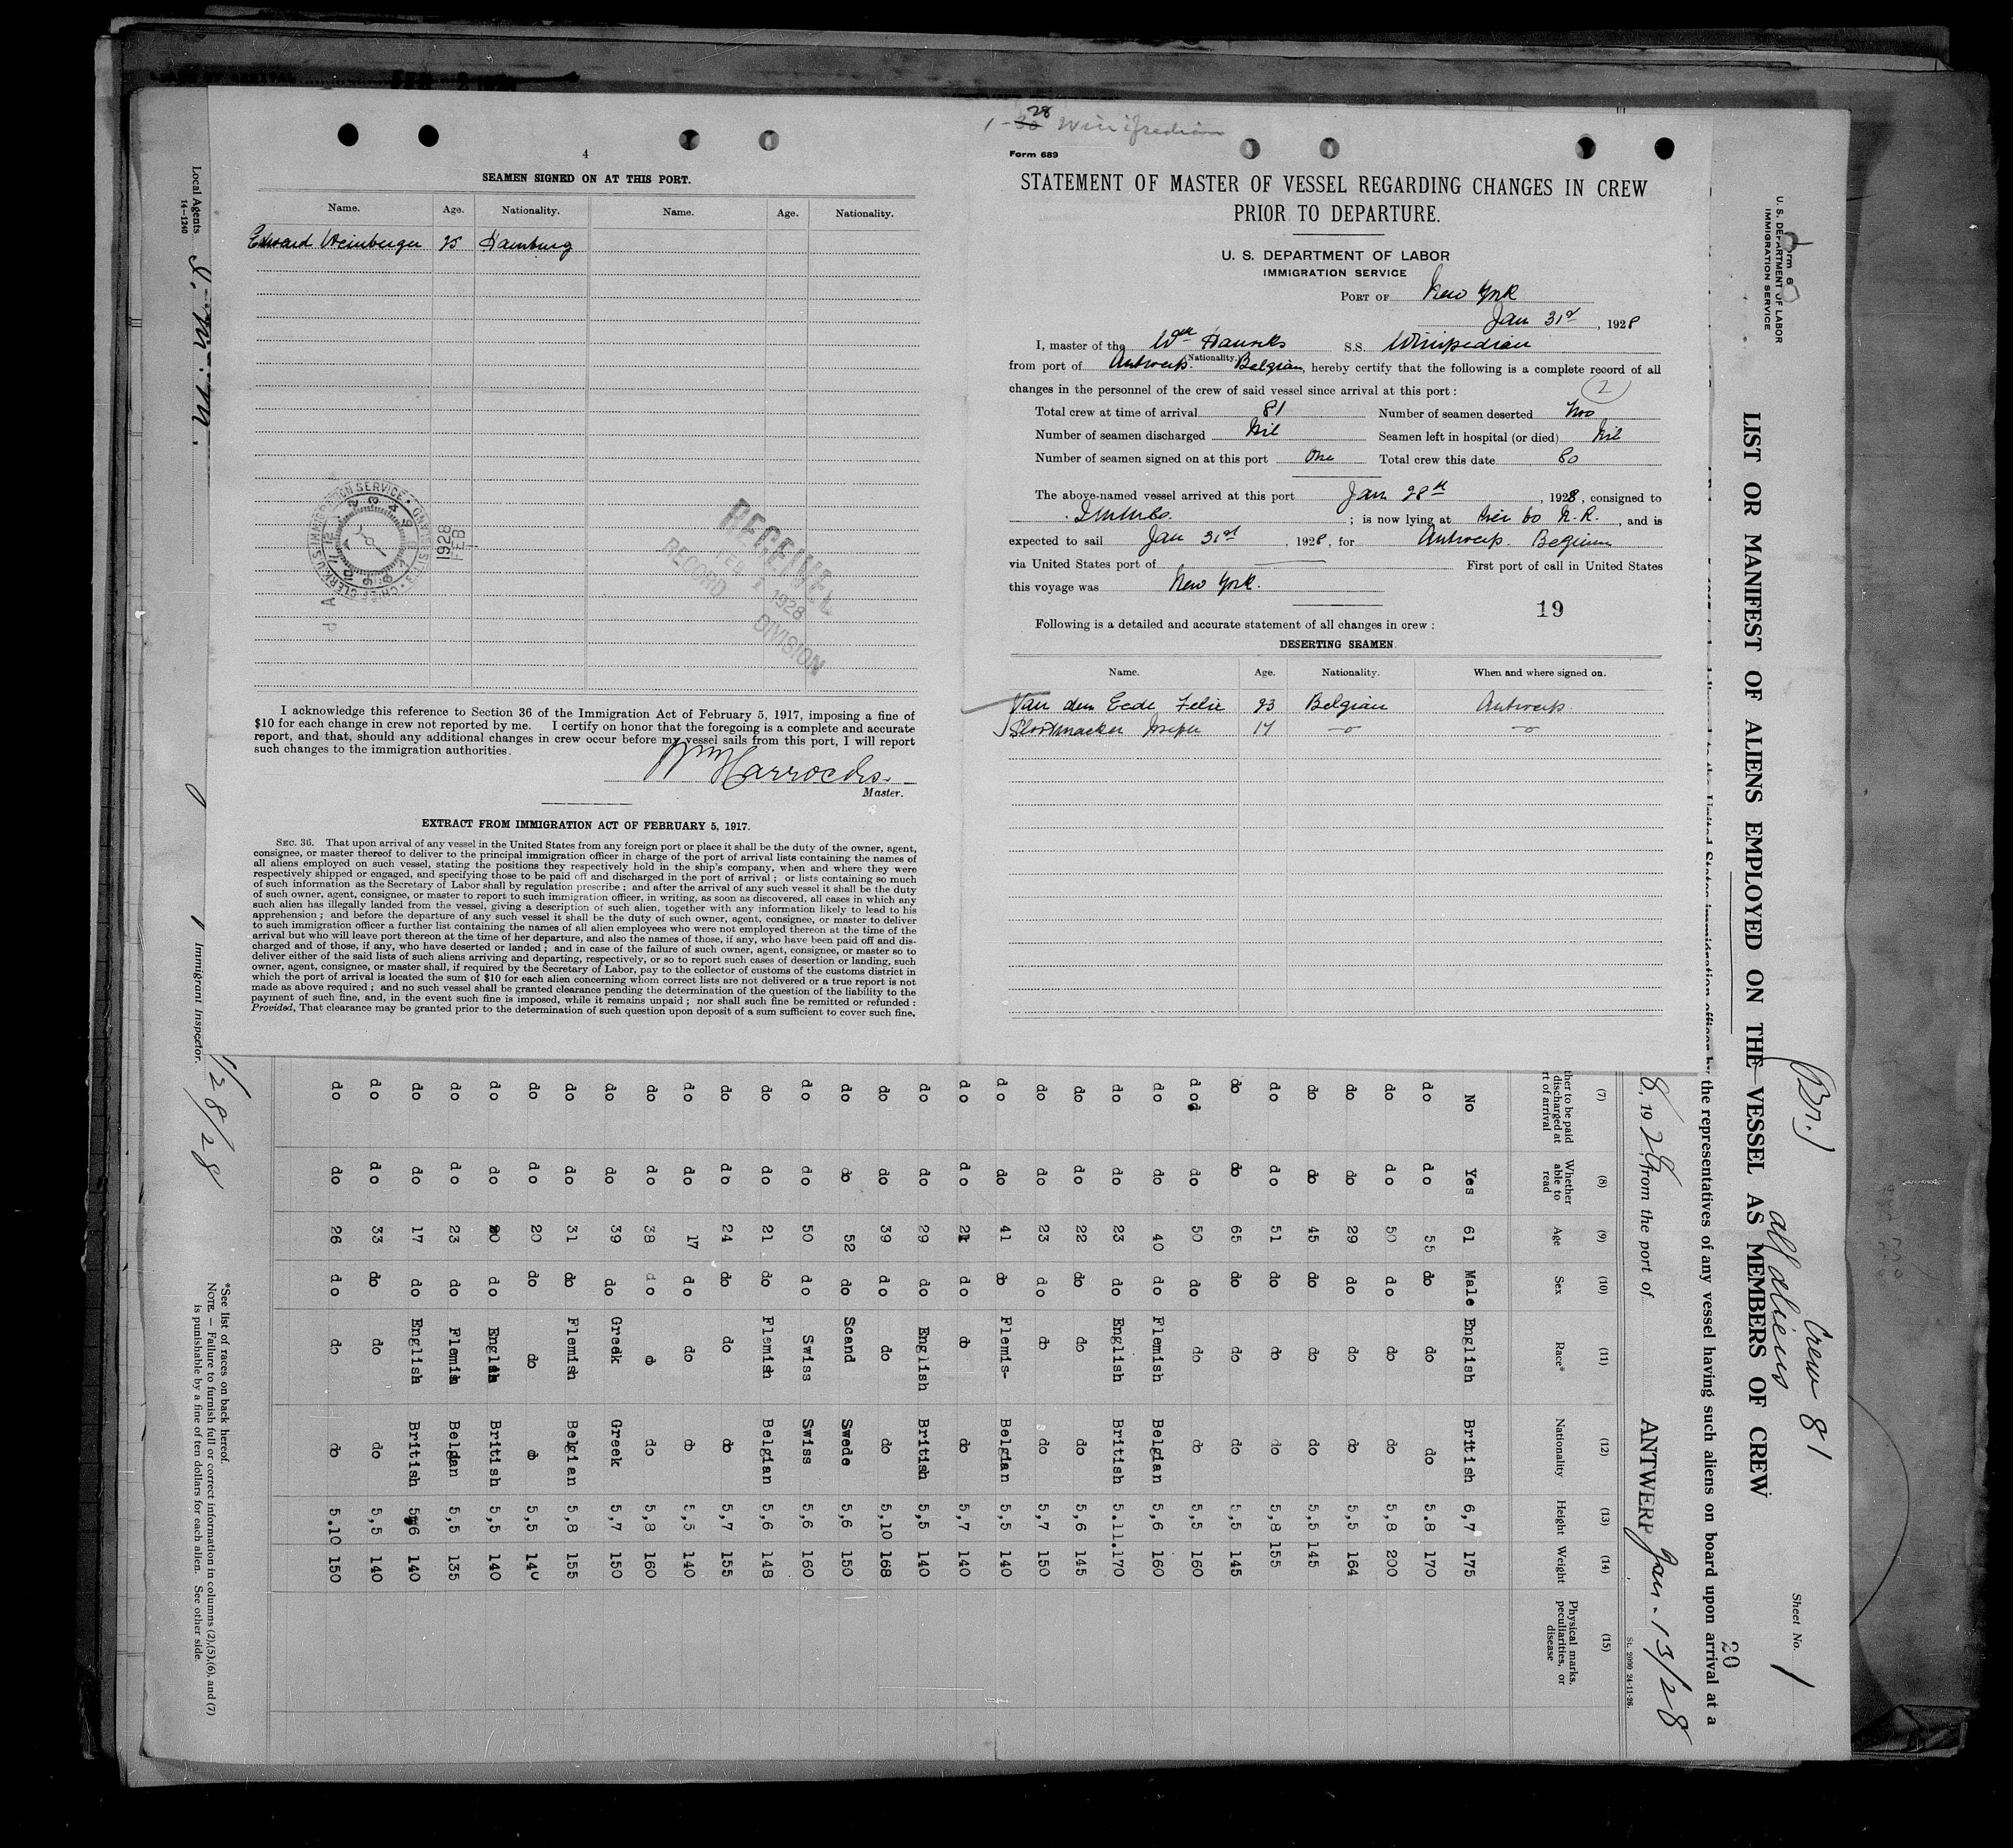 4
SEAMEN SIGNED ON AT THIS PORT.
Name. Age. Nationality. Name. Age. Nationality.
Edward Weinberger 25 Hamburg
CHIEF CLERK U.S. IMMIGRATION SERVICE
1928
FEB
RECEIVED
FEB 1 1928
RECORD DIVISION
I acknowledge this reference to Section 36 of the Immigration Act of February 5, 1917, imposing a fine of
$10 for each change in crew not reported by me. I certify on honor that the foregoing is a complete and accurate
report, and that, should any additional changes in crew occur before my vessel sails from this port, I will report
such changes to the immigration authorities.
Wm Harrocks
Master.
EXTRACT FROM IMMIGRATION ACT OF FEBRUARY 5, 1917.
SEC. 36. That upon arrival of any vessel in the United States from any foreign port or place it shall be the duty of the owner, agent,
consignee, or master thereof to deliver to the principal immigration officer in charge of the port of arrival lists containing the names of
all aliens employed on such vessel, stating the positions they respectively hold in the ship's company, when and where they were
respectively shipped or engaged, and specifying those to be paid off and discharged in the port of arrival; or lists containing so much
of such information as the Secretary of Labor shall by regulation prescribe; and after the arrival of any such vessel it shall be the duty
of such owner, agent, consignee, or master to report to such immigration officer, in writing, as soon as discovered, all cases in which any
such alien has illegally landed from the vessel, giving a description of such alien, together with any information likely to lead to his
apprehension; and before the departure of any such vessel it shall be the duty of such owner, agent, consignee, or master to deliver
to such immigration officer a further list containing the names of all alien employees who were not employed thereon at the time of the
arrival but who will leave port thereon at the time of her departure, and also the names of those, if any, who have been paid off and dis-
charged and of those, if any, who have deserted or landed; and in case of the failure of such owner, agent, consignee, or master so to
deliver either of the said lists of such aliens arriving and departing, respectively, or so to report such cases of desertion or landing, such
owner, agent, consignee, or master shall, if required by the Secretary of Labor, pay to the collector of customs of the customs district in
which the port of arrival is located the sum of $10 for each alien concerning whom correct lists are not delivered or a true report is not
made as above required; and no such vessel shall be granted clearance pending the determination of the question of the liability to the
payment of such fine, and, in the event such fine is imposed, while it remains unpaid; nor shall such fine be remitted or refunded:
Provided, That clearance may be granted prior to the determination of such question upon deposit of a sum sufficient to cover such fine.
1-28 Winifredian
Form 689
STATEMENT OF MASTER OF VESSEL REGARDING CHANGES IN CREW
PRIOR TO DEPARTURE.
U. S. DEPARTMENT OF LABOR
IMMIGRATION SERVICE
PORT OF New York
Jan 31st, 1928
I, master of the Wm Harrocks S.S. Winifredian
from port of Antwerp. (Nationality.) Belgian, hereby certify that the following is a complete record of all
changes in the personnel of the crew of said vessel since arrival at this port:
2
Total crew at time of arrival 81 Number of seamen deserted Two
Number of seamen discharged Nil Seamen left in hospital (or died) Nil
Number of seamen signed on at this port One Total crew this date 80
The above-named vessel arrived at this port Jan 28th, 1928, consigned to
I.M.M.Co. ; is now lying at Pier 60 N.R., and is
expected to sail Jan 31st, 1928, for Antwerp. Begium
via United States port of First port of call in United States
this voyage was New York.
19
Following is a detailed and accurate statement of all changes in crew:
DESERTING SEAMEN.
Name. Age. Nationality. When and where signed on.
Van den Eede Felix 23 Belgian Antwerp
Slootmaeker Joseph 17 -o- -o-
U. S. DEPARTMENT OF LABOR
IMMIGRATION SERVICE
Br.) all aliens Crew 81
Sheet No. 1
LIST OR MANIFEST OF ALIENS EMPLOYED ON THE VESSEL AS MEMBERS OF CREW
20
the representatives of any vessel having such aliens on board upon arrival at a
8, 1928, from the port of ANTWERP Jan. 13/28
St. 2090 24-11-26.
(7) (8) (9) (10) (11) (12) (13) (14) (15)
ther to be paid discharged at rt of arrival Whether able to read Age Sex Race* Nationality Height Weight Physical marks, peculiarities, or disease
No Yes 61 Male English British 6,7 175
do do 55 do do do 5.8 170
do do 50 do do do 5,8 200
do do 29 do do do 5,5 164
do do 45 do do do 5,5 145
do do 51 do do do 5,8 155
do do 65 do do do 5,5 145
do do 50 do do do 5,5 160
do do 40 do Flemish Belgian 5,6 160
do do 23 do English British 5.11. 170
do do 22 do do do 5,6 145
do do 23 do do do 5,7 150
do do 41 do Flemis- Belgian 5,5 140
do do 21 do do do 5,7 140
do do 29 do English British 5,5 140
do do 39 do do do 5,10 168
do do 52 do Scand Swede 5,6 150
do do 50 do Swiss Swiss 5,6 160
do do 21 do Flemish Belgian 5,6 148
do do 24 do do do 5,7 155
do do 17 do do do 5,5 140
do do 38 do do do 5,8 160
do do 39 do Greek Greek 5,7 150
do do 31 do Flemish Belgian 5,8 155
do do 20 do do do 5,5 140
do do 20 do English British 5,5 140
do do 23 do Flemish Belgian 5,5 135
do do 17 do English British 5,6 140
do do 33 do do do 5,5 140
do do 26 do do do 5.10 150
*See list of races on back hereof.
NOTE.—Failure to furnish full or correct information in columns (2),(5),(6), and (7)
is punishable by a fine of ten dollars for each alien. See other side.
Local Agents I. M. M.
14-1240
Immigrant Inspector.
1/28/28